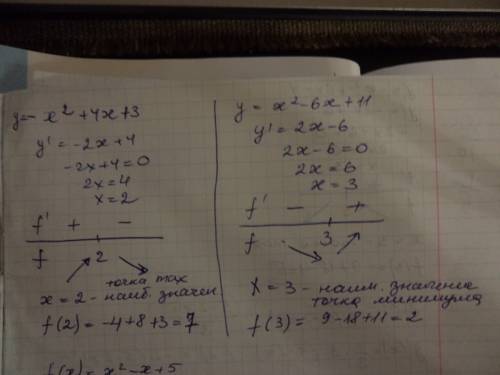 y=-x²+4x+3
y'=-2x+4
-2x+4=0
2x=4
x=2
f' + -
f 2
точка max
x=2- наиб. значен
f(2)=-4+8+3=7
f(x)=x²-x+5
y=x²-6x+11
y'=2x-6
2x-6=0
2x=6
x=3
f' - +
f 3
X=3- наим. значение
точка минимума
f(3)= 9-18+11=2